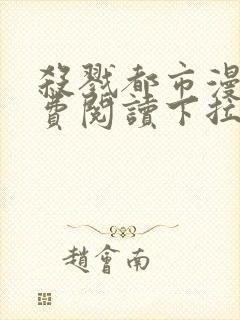 殺戮都市漫
費閱讀下拉
趙會南